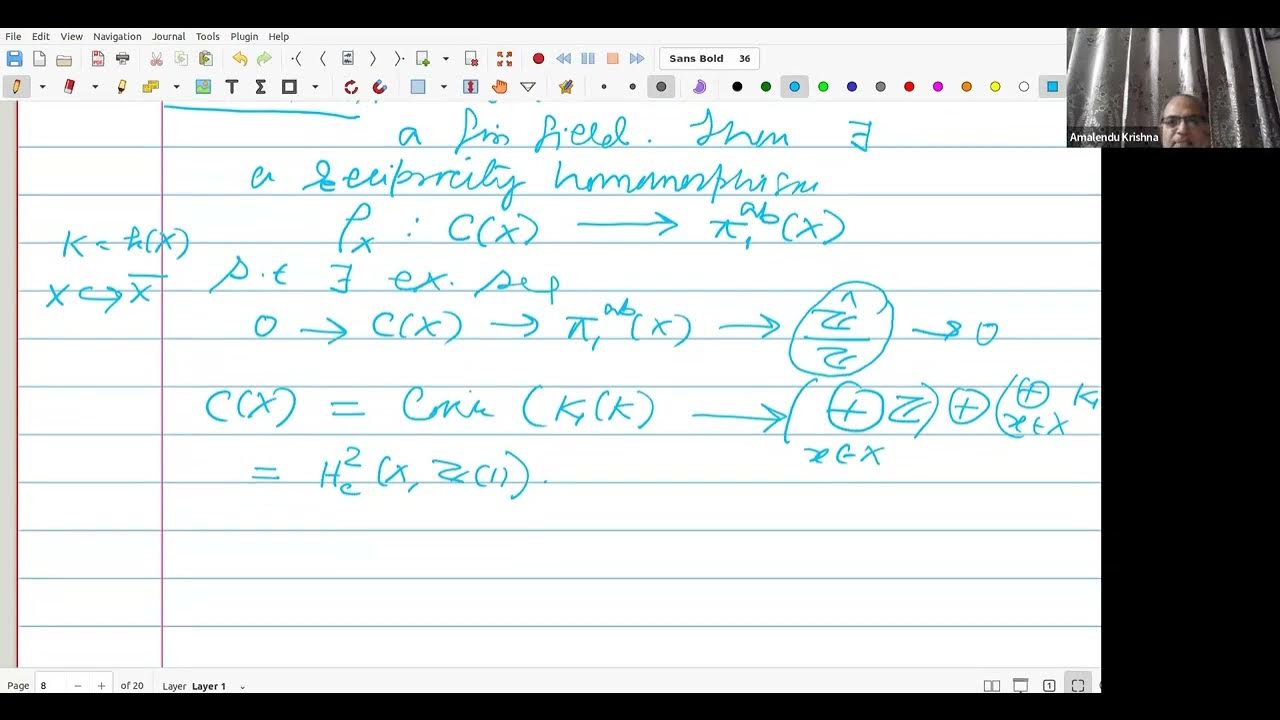 File Edit View Navigation Journal Tools Plugin Help
Sans Bold 36
Amalendu Krishna
a fin field. Then ∃
a reciprocity homomorphism
ρ_X : C(X) ⟶ π₁^ab(X)
K = k(X)
X ↪ X̄
s.t ∃ ex. seq
0 → C(X) → π₁^ab(X) → Ẑ/ℤ → 0
C(X) = Coker (K₁(K) ⟶ (⊕_{x∈X} ℤ) ⊕ (⊕_{x∈X} K₁
= H²_c (X, ℤ(1)).
Page 8 − + of 20 Layer Layer 1